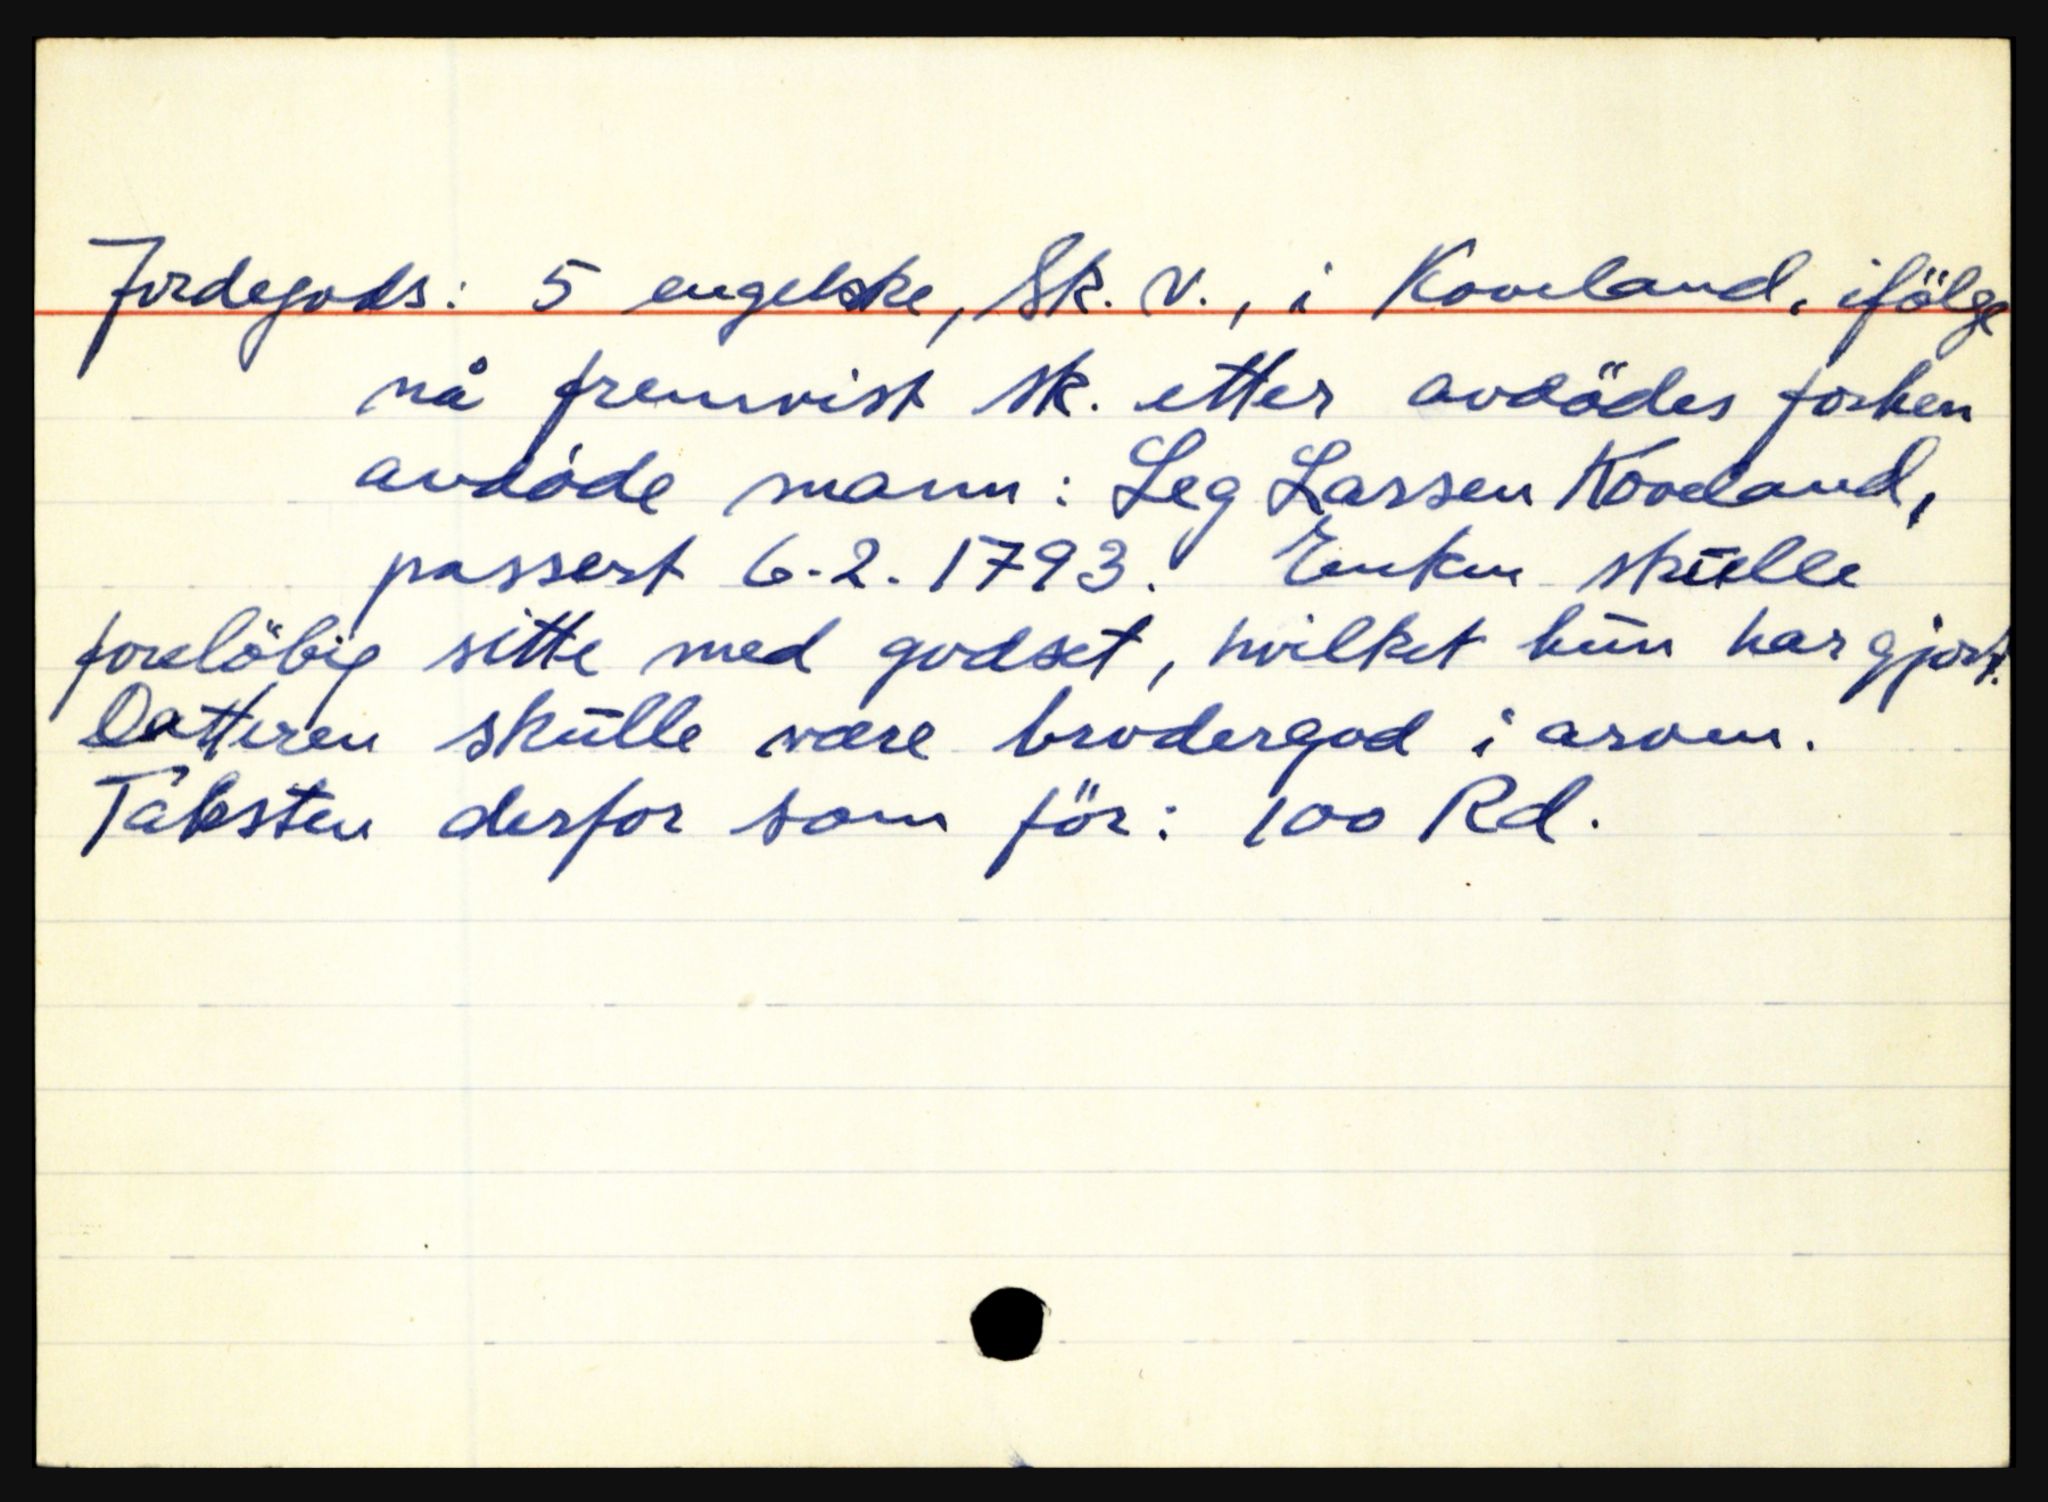 Jordegods: 5 engelske, Sk. V., i Koveland. ifölge
nå fremvist sk. etter avdödes forhen
avdöde mann: Leg Larssen Koveland,
passert 6.2.1793. Enken skulle
forelöbig sitte med godset, hvilket hun har gjort.
Datteren skulle være brodergod i arven.
Taksten derfor som för: 100 Rd.